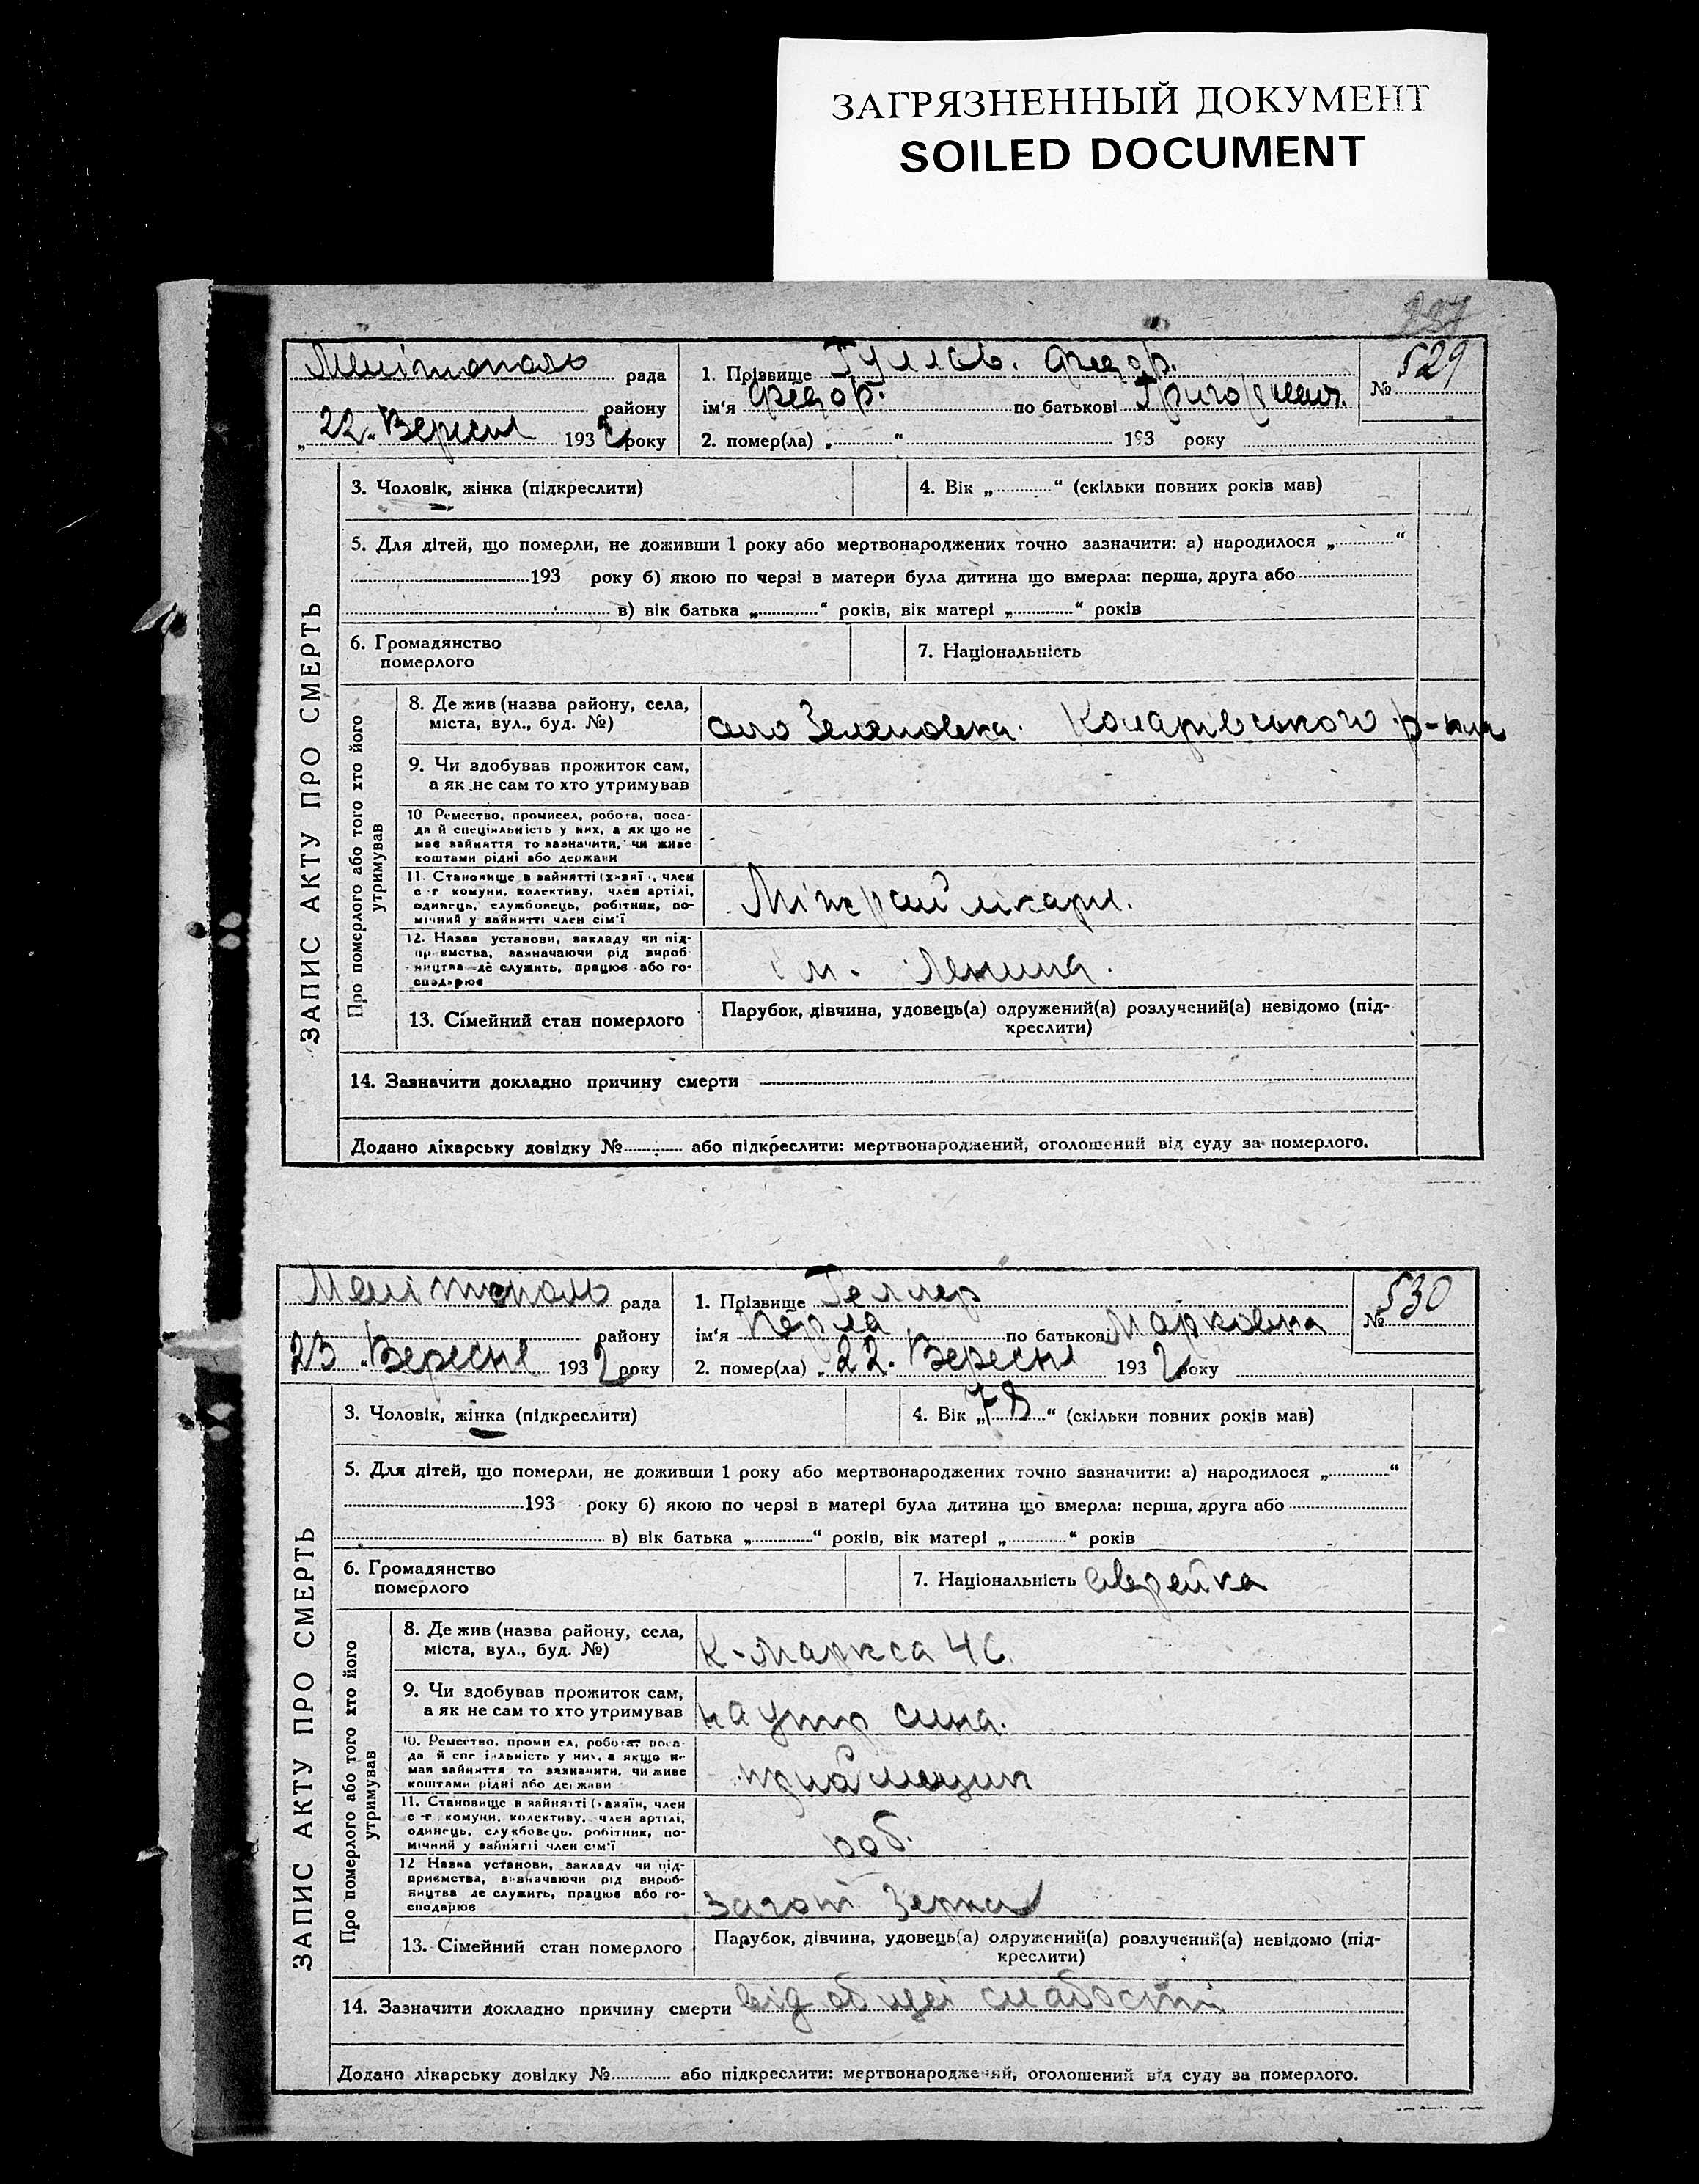 ЗАГРЯЗНЕННЫЙ ДОКУМЕНТ
SOILED DOCUMENT
237
Мелітополь рада
району
„22„ Вересня 1932 року
1. Прізвище Федор.
ім'я Федор. по батькові Григорьевич.
№ 529
2. помер(ла) „ “ 193 року
ЗАПИС АКТУ ПРО СМЕРТЬ
3. Чоловік, жінка (підкреслити)
4. Вік „ “ (скільки повних років мав)
5. Для дітей, що померли, не доживши 1 року або мертвонароджених точно зазначити: а) народилося „ “
193 року б) якою по черзі в матери була дитина що вмерла: перша, друга або
в) вік батька „ “ років, вік матері „ “ років
6. Громадянство
померлого
7. Національність
Про померлого або того хто його
утримував
8. Де жив (назва району, села,
міста, вул., буд. №)
село Зеленовка.
9. Чи здобував прожиток сам,
а як не сам то хто утримував
10 Ремество, промисел, робота, поса-
да й спеціяльність у них, а як що не
має зайняття то зазначити, чи живе
коштами рідні або держави
11. Становище в зайнятті (хазяї , член
с-г комуни, колективу, член артілі,
одинець, службовець, робітник, по-
мічний у зайнятті член сім'ї
Міжрай лікарн.
12. Назва установи, закладу чи під-
приємства, зазначаючи рід вироб-
ництва де служить, працює або го-
сподарює
ім. Ленина.
13. Сімейний стан померлого
Парубок, дівчина, удовець(а) одружений(а) розлучений(а) невідомо (під-
креслити)
14. Зазначити докладно причину смерти
Додано лікарську довідку № або підкреслити: мертвонароджений, оголошений від суду за померлого.
Мелітополь рада
району
23 „Вересня 1932 року
1. Прізвище Геллер
ім'я Перла по батькові Марковна
№ 530
2. помер(ла) „22. Вересня 1932 року
ЗАПИС АКТУ ПРО СМЕРТЬ
3. Чоловік, жінка (підкреслити)
4. Вік „78“ (скільки повних років мав)
5. Для дітей, що померли, не доживши 1 року або мертвонароджених точно зазначити: а) народилося „ “
193 року б) якою по черзі в матері була дитина що вмерла: перша, друга або
в) вік батька „ “ років, вік матері „ “ років
6. Громадянство
померлого
7. Національність єврейка
Про померлого або того хто його
утримував
8. Де жив (назва району, села,
міста, вул., буд. №)
К-Маркса 46
9. Чи здобував прожиток сам,
а як не сам то хто утримував
на утр сина.
10. Ремество, промисел, робота, поса-
да й спеціяльність у них, а якщо не
має зайняття то зазначити, чи живе
коштами рідні або держави
11. Становище в зайнятті (хазяїн, член
с-г комуни, колективу, член артілі,
одинець, службовець, робітник, по-
мічний у зайнятті член сім'ї
роб.
12 Назва установи, закладу чи під-
приємства, зазначаючи рід вироб-
ництва де служить, працює або го-
сподарює
Загот Зерна
13. Сімейний стан померлого
Парубок, дівчина, удовець(а) одружений(а) розлучений(а) невідомо (під-
креслити)
14. Зазначити докладно причину смерти від общеі слабості
Додано лікарську довідку № або підкреслити: мертвонароджений, оголошений від суду за померлого.